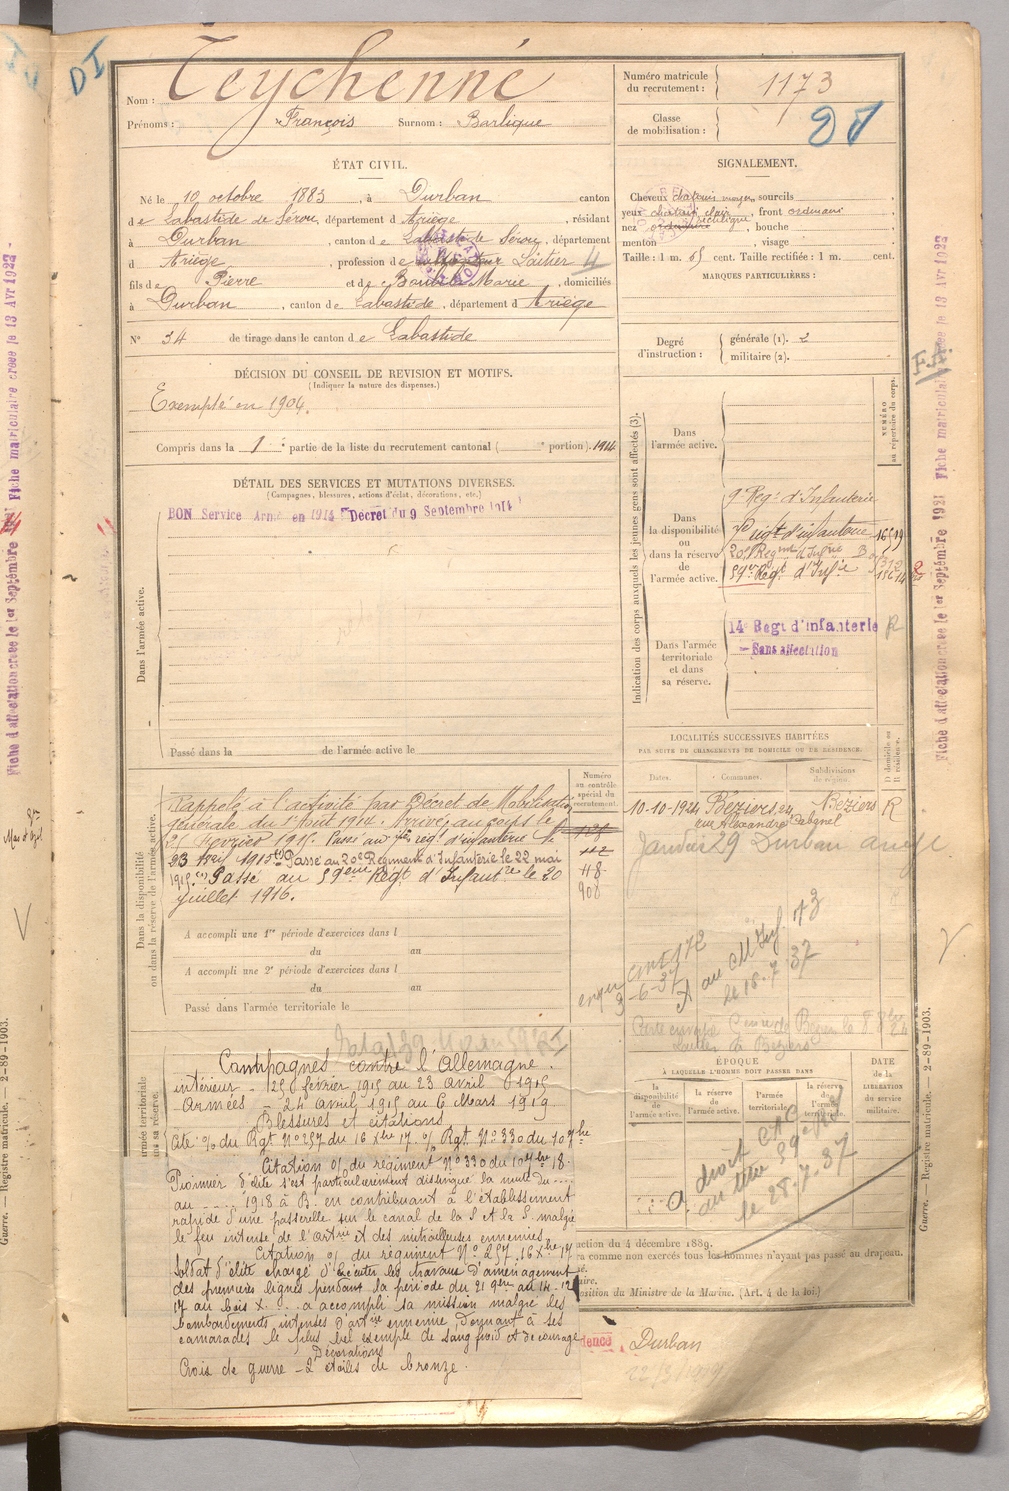 DI
Nom : Teychenné
Prénoms : François Surnom : Barlique
Numéro matricule du recrutement : 1173
Classe de mobilisation :
ÉTAT CIVIL.
Né le 10 octobre 1883, à Durban canton
de Labastide de Sérou, département d Ariège, résidant
à Durban, canton de Labastide Sérou, département
d Ariège, profession de Laitier 4
fils de Pierre et de Marie, domiciliés
à Durban, canton de Labastide, département d Ariège
N° 34 de tirage dans le canton de Labastide
DÉCISION DU CONSEIL DE REVISION ET MOTIFS.
(Indiquer la nature des dispenses.)
Exempté en 1904.
Compris dans la 1e partie de la liste du recrutement cantonal ( e portion). 1914
DÉTAIL DES SERVICES ET MUTATIONS DIVERSES.
(Campagnes, blessures, actions d'éclat, décorations, etc.)
BON Service Armé en 1914 Décret du 9 Septembre 1914
Dans l'armée active.
Passé dans la de l'armée active le
SIGNALEMENT.
Cheveux chatain moyen, sourcils
yeux chatain clair, front ordinaire
nez rectiligne, bouche
menton, visage
Taille : 1 m. 65 cent. Taille rectifiée : 1 m. cent.
MARQUES PARTICULIÈRES :
Degré d'instruction : générale (1). 2
militaire (2).
F.A.
Indication des corps auxquels les jeunes gens sont affectés (3).
NUMÉRO au répertoire du corps.
Dans l'armée active.
Dans la disponibilité ou dans la réserve de l'armée active.
9e Régt d'Infanterie
7e régt d'infanterie
20e Regment d'Infrie
59e Régt d'Infie
Dans l'armée territoriale et dans sa réserve.
14e Régt d'infanterie R
Sans affectation
LOCALITÉS SUCCESSIVES HABITÉES
PAR SUITE DE CHANGEMENTS DE DOMICILE OU DE RÉSIDENCE.
Dates. Communes. Subdivisions de région. D domicile ou R résidence.
10-10-1924 Béziers 24 Béziers R
rue Alexandre Cabanel
Janvier 29 Durban ariège
Dans la disponibilité ou dans la réserve de l'armée active.
Numéro au contrôle spécial du recrutement.
Rappelé à l'activité par Décret de Mobilisation
générale du 1er Août 1914. Arrivé au corps le
25 février 1915. Passé au 7e rég d'infanterie le
23 avril 1915 Passé au 20e Régiment d'Infanterie le 22 mai
1915. Passé au 59ème Régt d'Infantre le 20
juillet 1916.
118
908
A accompli une 1re période d'exercices dans l
du au
A accompli une 2e période d'exercices dans l
du au
Passé dans l'armée territoriale le
3-6-37
le 18.7.37
Campagnes contre l'Allemagne.
intérieur - 25 février 1915 au 23 Avril 1915
Armées - 24 avril 1915 au 6 Mars 1919
Blessures et citations
Cité % du Rgt N° 257 du 16 Xbre 17 % Rgt. N° 330 du 10 7bre
Citation % du régiment N° 330 du 10 7bre 18.
Pionnier d'élite s'est particulièrement distingué la nuit du ....
au ..... 1918 à B. en contribuant à l'établissement
rapide d'une passerelle sur le canal de la S et la S. malgré
le feu intense de l'artrie et des mitrailleuses ennemies.
Citation % du régiment N° 257. 16 Xbre 17
Soldat d'élite chargé d'éxécuter les travaux d'aménagement
des premières lignes pendant la période du 21 9bre au 14-12
17 au bois X. a accompli sa mission malgré les
bombardements intenses d'artrie ennemie, donnant à ses
camarades le plus bel exemple de sang froid et de courage
Décorations
Croix de guerre - 2 étoiles de bronze.
ÉPOQUE
À LAQUELLE L'HOMME DOIT PASSER DANS
DATE de la LIBÉRATION du service militaire.
la disponibilité de l'armée active. la réserve de l'armée active. l'armée territoriale. la réserve de l'armée territoriale.
a droit CAC
au titre 59e RI
le 28.7.37
action du 4 décembre 1889.
ra comme non exercés tous les hommes n'ayant pas passé au drapeau.
osition du Ministre de la Marine. (Art. 4 de la loi.)
dence Durban
22/3/1919
Fiche d'affectation créée le 1er Septembre 1921 Fiche matriculaire créée le 13 Avr 1922
Guerre. — Registre matricule. — 2-89-1903.